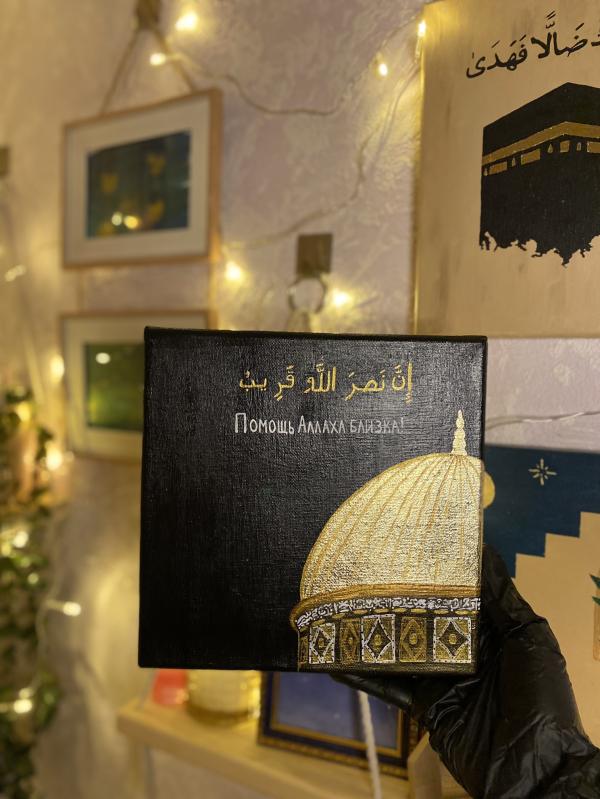 ضَالًّا فَهَدَىٰ
إِنَّ نَصرَ اللَّهِ قَرِيبُ
Помощь Аллаха близка!